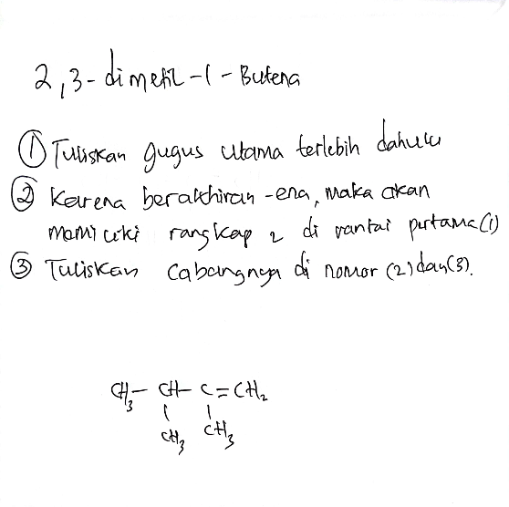 2,3-dimetil-1-Butena
① Tuliskan gugus utama terlebih dahulu
② Karena berakhiran -ena, maka akan
memiliki rangkap 2 di rantai pertama (1)
③ Tuliskan cabangnya di nomor (2) dan (3).
CH₃ - CH - C = CH₂
CH₃ CH₃